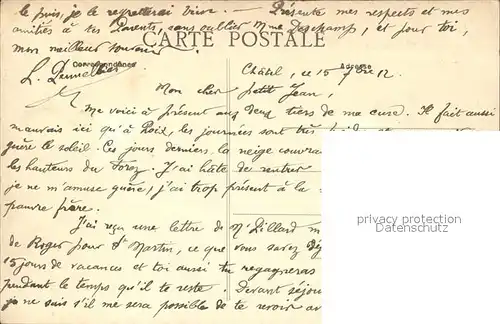 le puis, je le regretterai bien. — Présente mes respects et mes
amitiés à tes Parents, sans oublier Mme Deschamp, et pour toi,
mon meilleur souvenir
CARTE POSTALE
Correspondance
Adresse
Châtel, ce 15 7bre 12.
Mon cher petit Jean,
Me voici à présent aux deux tiers de ma cure. Il fait aussi
mauvais ici qu'à Poix, les journées sont très
guère le soleil. Ces jours derniers la neige couvrait
les hauteurs du Forez. J'ai hâte de rentrer
je ne m'amuse guère, j'ai trop présent à la
pauvre frère.
J'ai reçu une lettre de Mr Dillard
de Roger pour St Martin, ce que vous savez
15 jours de vacances et toi aussi tu regagneras
pendant le temps qu'il te reste. Devant
je ne sais s'il me sera possible de te revoir
privacy protection
Datenschutz